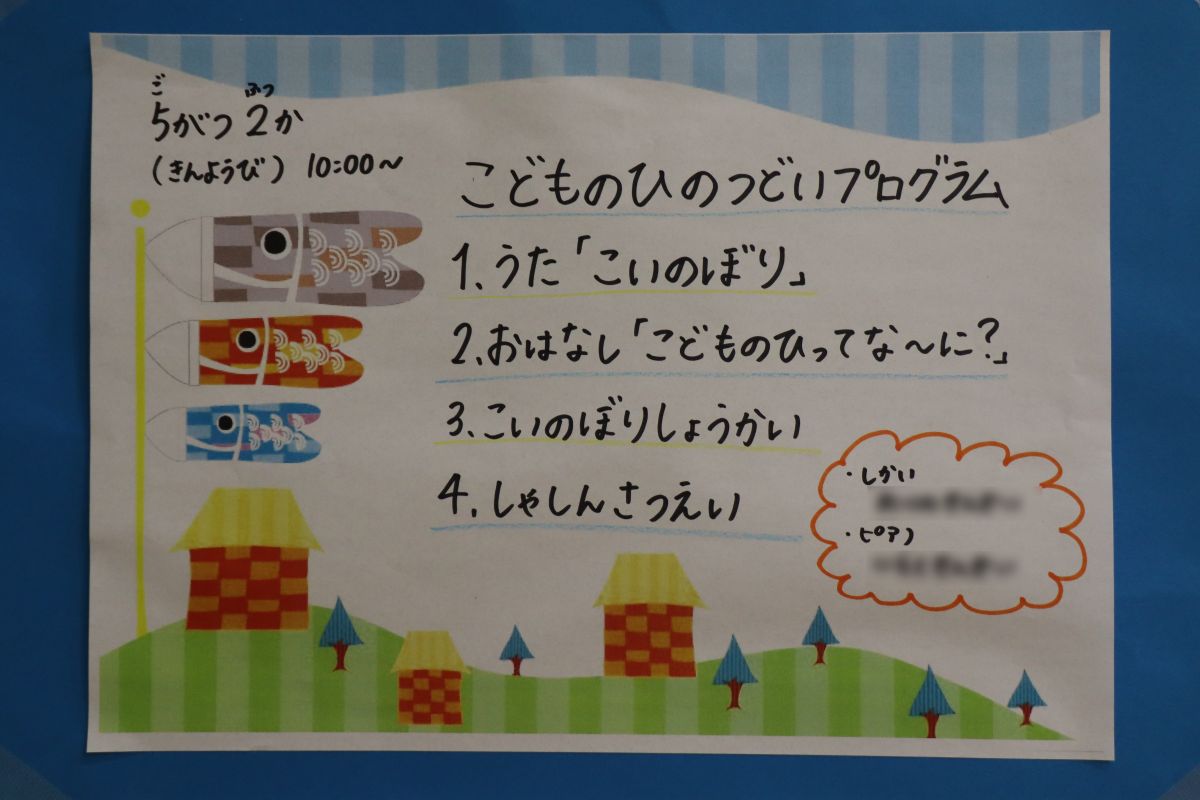 ご ふつ
5がつ2か
(きんようび) 10:00~
こどものひのつどいプログラム
1.うた「こいのぼり」
2.おはなし「こどものひってな~に?」
3.こいのぼりしょうかい
4.しゃしんさつえい
・しかい
・ピアノ